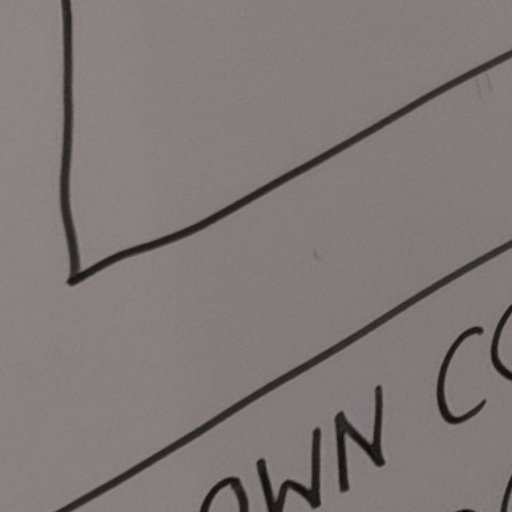 OWN CO